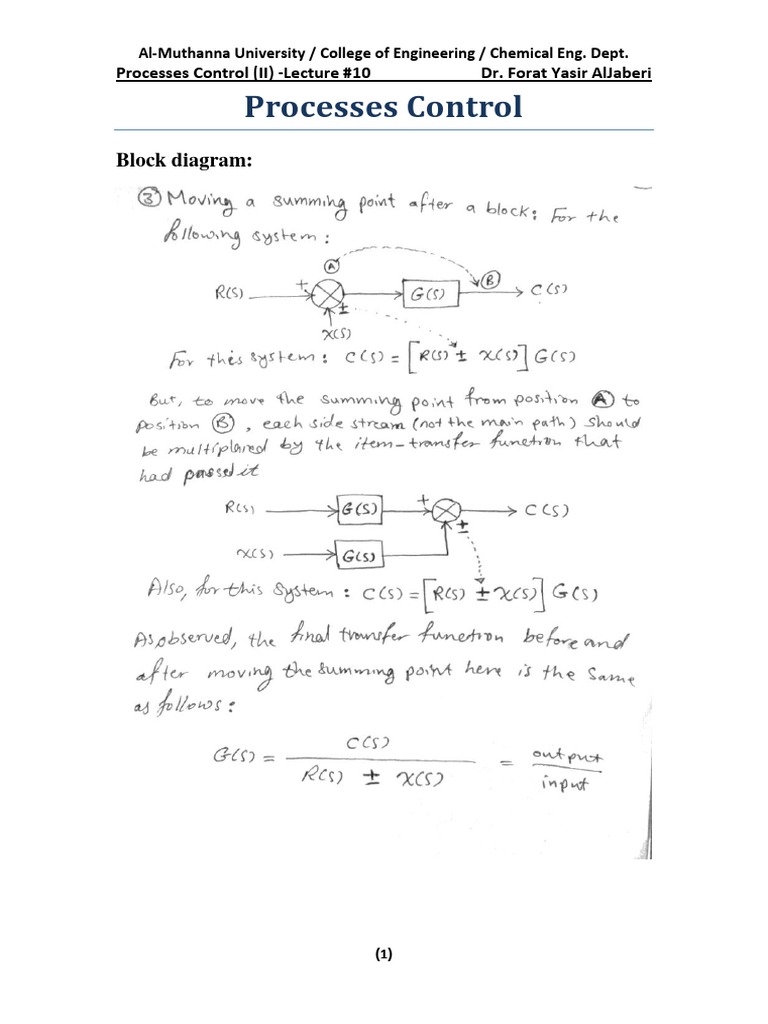 Al-Muthanna University / College of Engineering / Chemical Eng. Dept.
Processes Control (II) -Lecture #10 Dr. Forat Yasir AlJaberi
Processes Control
Block diagram:
③ Moving a summing point after a block: For the
following system:
A
B
R(S) + G(S) C(S)
±
X(S)
For this system: C(S) = [R(S) ± X(S)] G(S)
But, to move the summing point from position Ⓐ to
position Ⓑ, each side stream (not the main path) should
be multiplared by the item-transfer function that
had passed it
R(S) G(S) + C(S)
±
X(S) G(S)
Also, for this system: C(S) = [R(S) ± X(S)] G(S)
As observed, the final transfer function before and
after moving the summing point here is the same
as follows:
G(S) = C(S) / R(S) ± X(S) = output / input
(1)